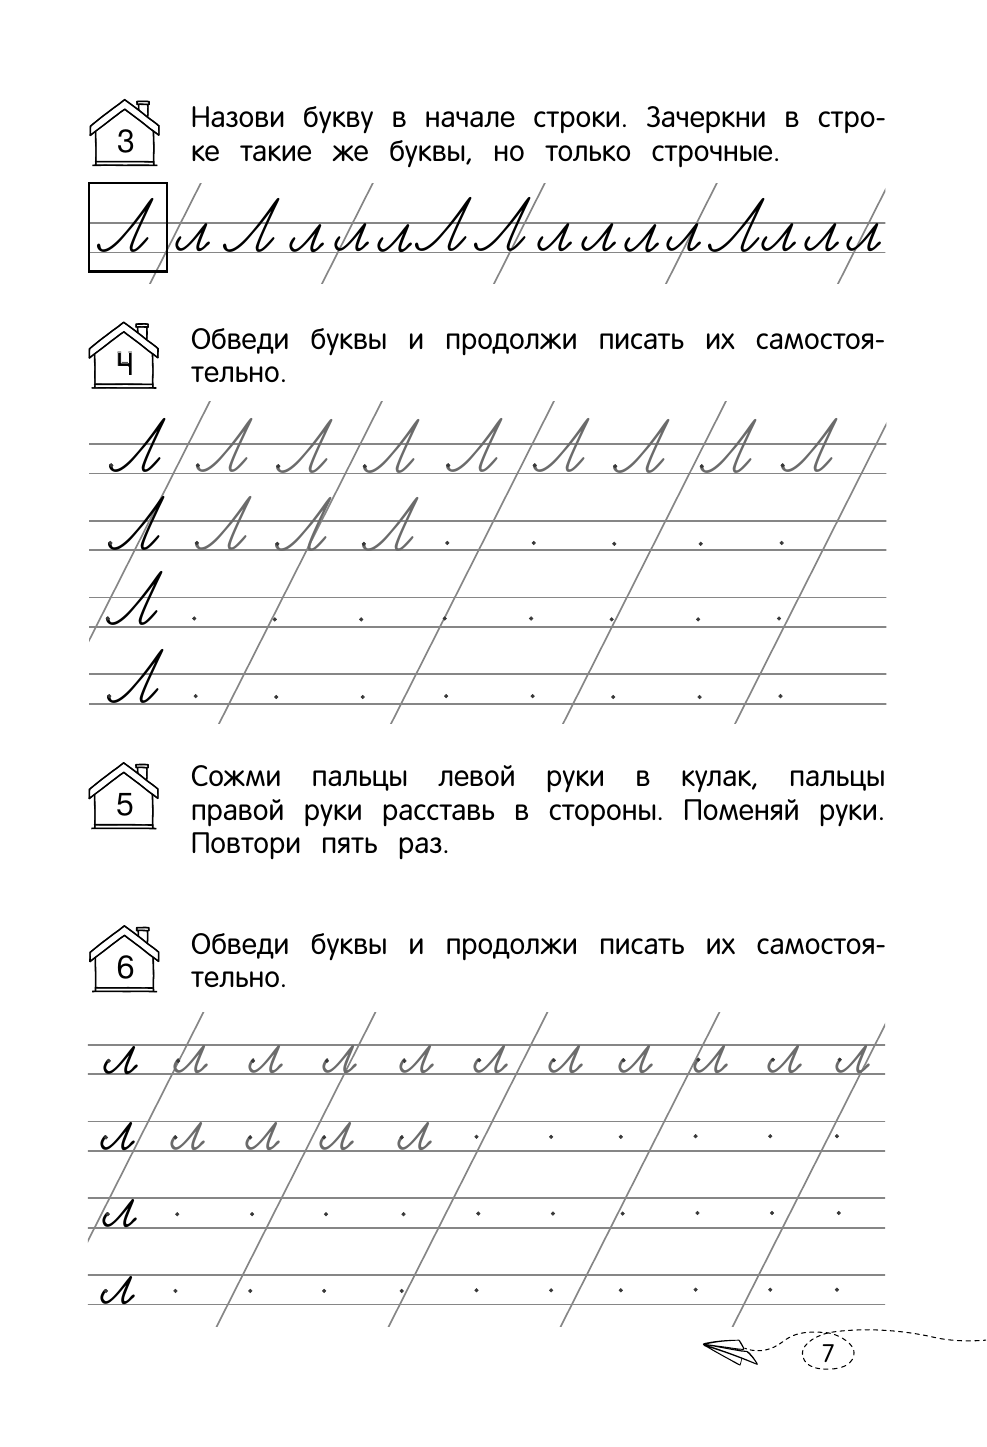 3
Назови букву в начале строки. Зачеркни в стро-
ке такие же буквы, но только строчные.
Л л Л л л л Л Л л л л л Л л л л
4
Обведи буквы и продолжи писать их самостоя-
тельно.
Л Л Л Л Л Л Л Л Л
Л Л Л Л
Л
Л
5
Сожми пальцы левой руки в кулак, пальцы
правой руки расставь в стороны. Поменяй руки.
Повтори пять раз.
6
Обведи буквы и продолжи писать их самостоя-
тельно.
л л л л л л л л л л л
л л л л л
л
л
7